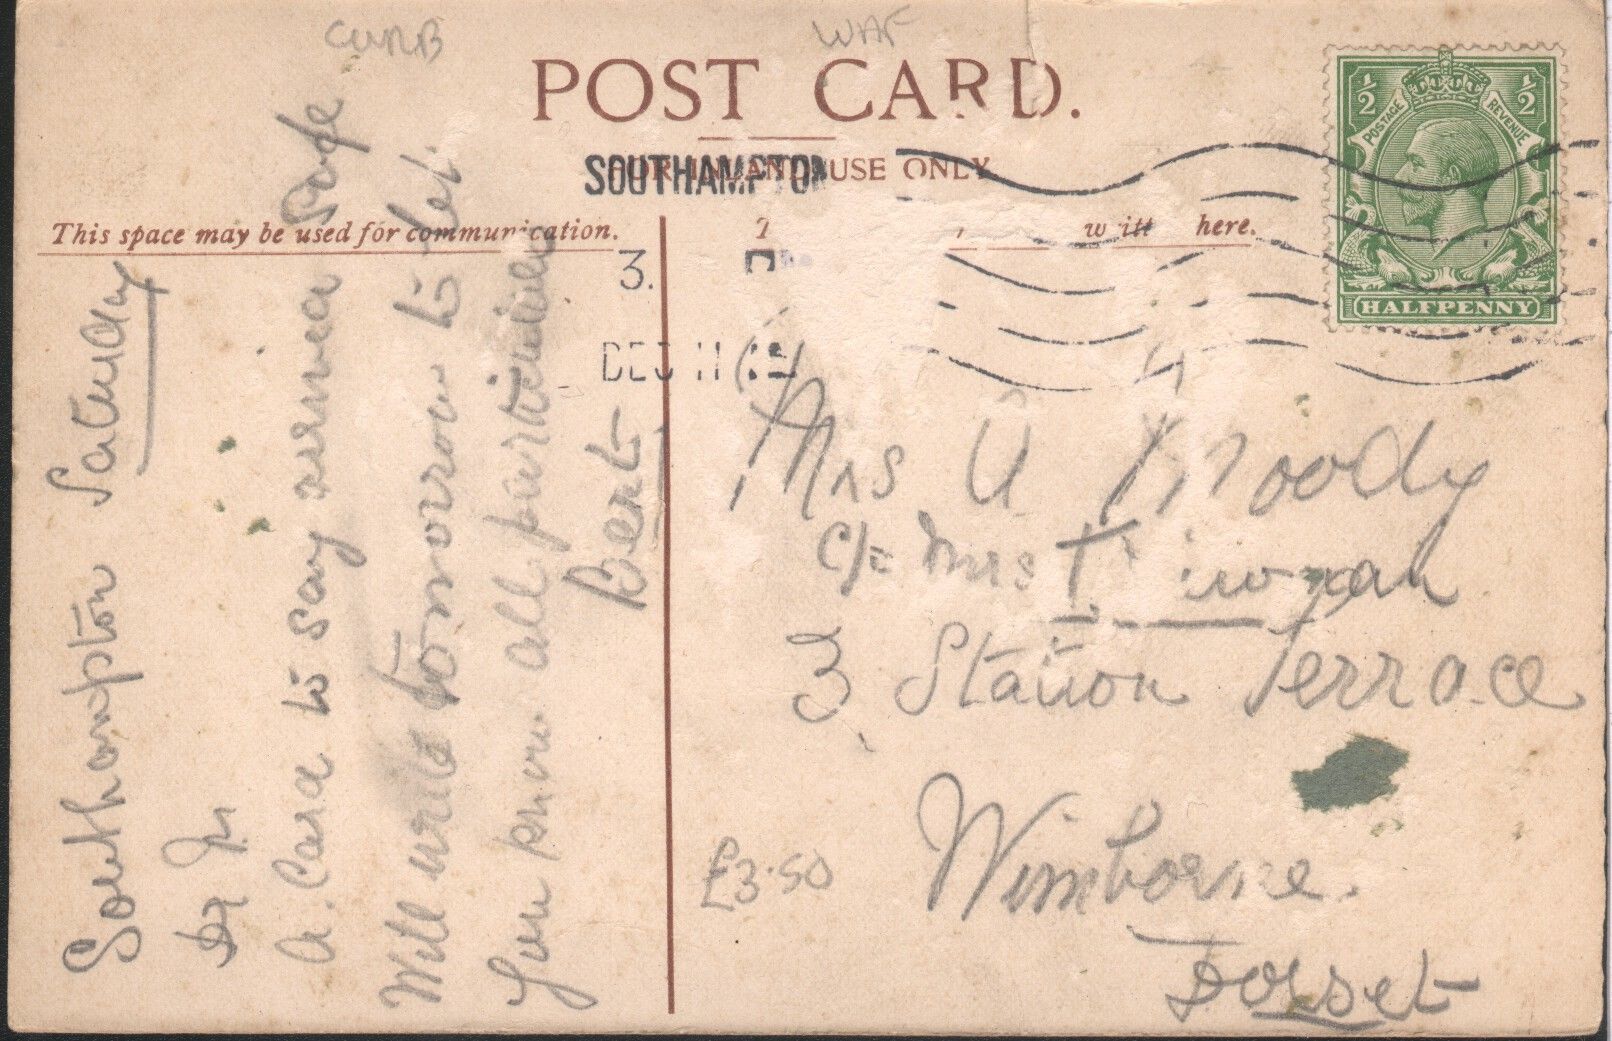 CURB
WAF
POST CARD.
FOR INLAND USE ONLY
SOUTHAMPTON
This space may be used for communication.
here.
3.
DEC 11 15
½ POSTAGE REVENUE ½
HALFPENNY
Southampton Saturday
Dr M
A. Card to say arrived safe
Will write tomorrow to let
you know all particulars
Bert
Mrs A Moody
c/o Mrs
3 Station Terrace
Wimborne.
Dorset
£3.50